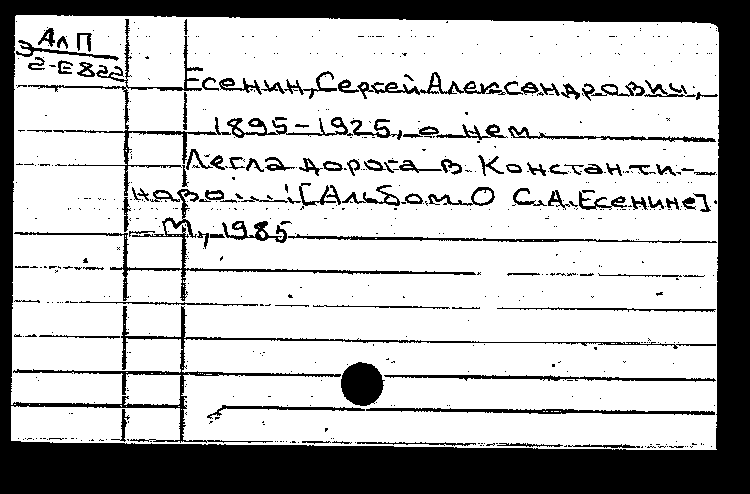 АлП
Э 2-Е822
Есенин, Сергей Александрович,
1895-1925, о нем.
Легла дорога в Константи-
ново...: [Альбом. О С.А.Есенине].
М., 1985